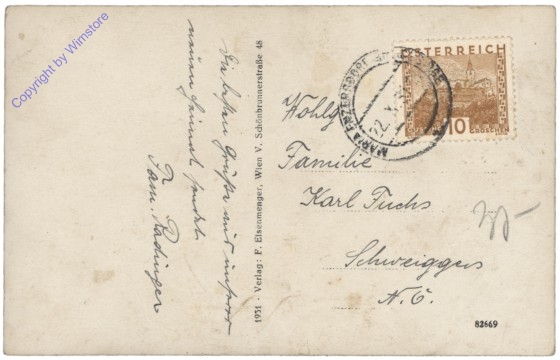 Copyright by Wimstore
Die besten Grüße aus unserer
neuen Heimat sendet
Fam. Radinger
1931 - Verlag: F. Eisenmenger, Wien V. Schönbrunnerstraße 48
ÖSTERREICH
10 GROSCHEN
MARIA ENZERSDORF
22.X.
Wohlg.
Familie
Karl Fuchs
Schweiggers
N. Ö.
82669